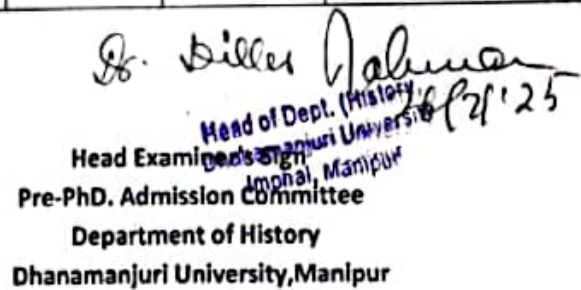 Dr.
26/2/'25
Head of Dept. (History
Dhanamanjuri University
Imphal, Manipur
Head Examiner's Sign
Pre-PhD. Admission Committee
Department of History
Dhanamanjuri University,Manipur